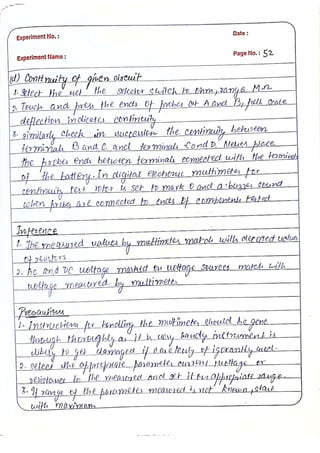 Experiment No. :
Date :
Experiment Name :
Page No. : 52
(d) Continuity of given circuit
1. Select the the selector switch to ohm, range MΩ
2. Touch and press the ends of probes at A and B, full scale
deflection indicates continuity
3. similarly check in succession the continuity between
terminals B and C and terminals C and D. Never place
the probes ends between terminals connected with the terminals
of the battery. In digital electronic multimeter for
continuity test rotor is set to mark 0 and a buzzer sound
when probes are connected to ends of components tested
Inference
1. The measured values by multimeter match with decoded values
of resistors
2. AC and DC voltage marked on voltage sources match with
voltage measured by multimeter
Precautions
1. Instructions for handling the multimeter should be gone
through thoroughly as it is very handy instrument is
likely to get damaged if carelessly or ignorantly used.
2. select the appropriate parameter current, voltage or
resistance to the measured and set it on appropriate range.
3. If range of the parameter measured is not known, start
with maximum